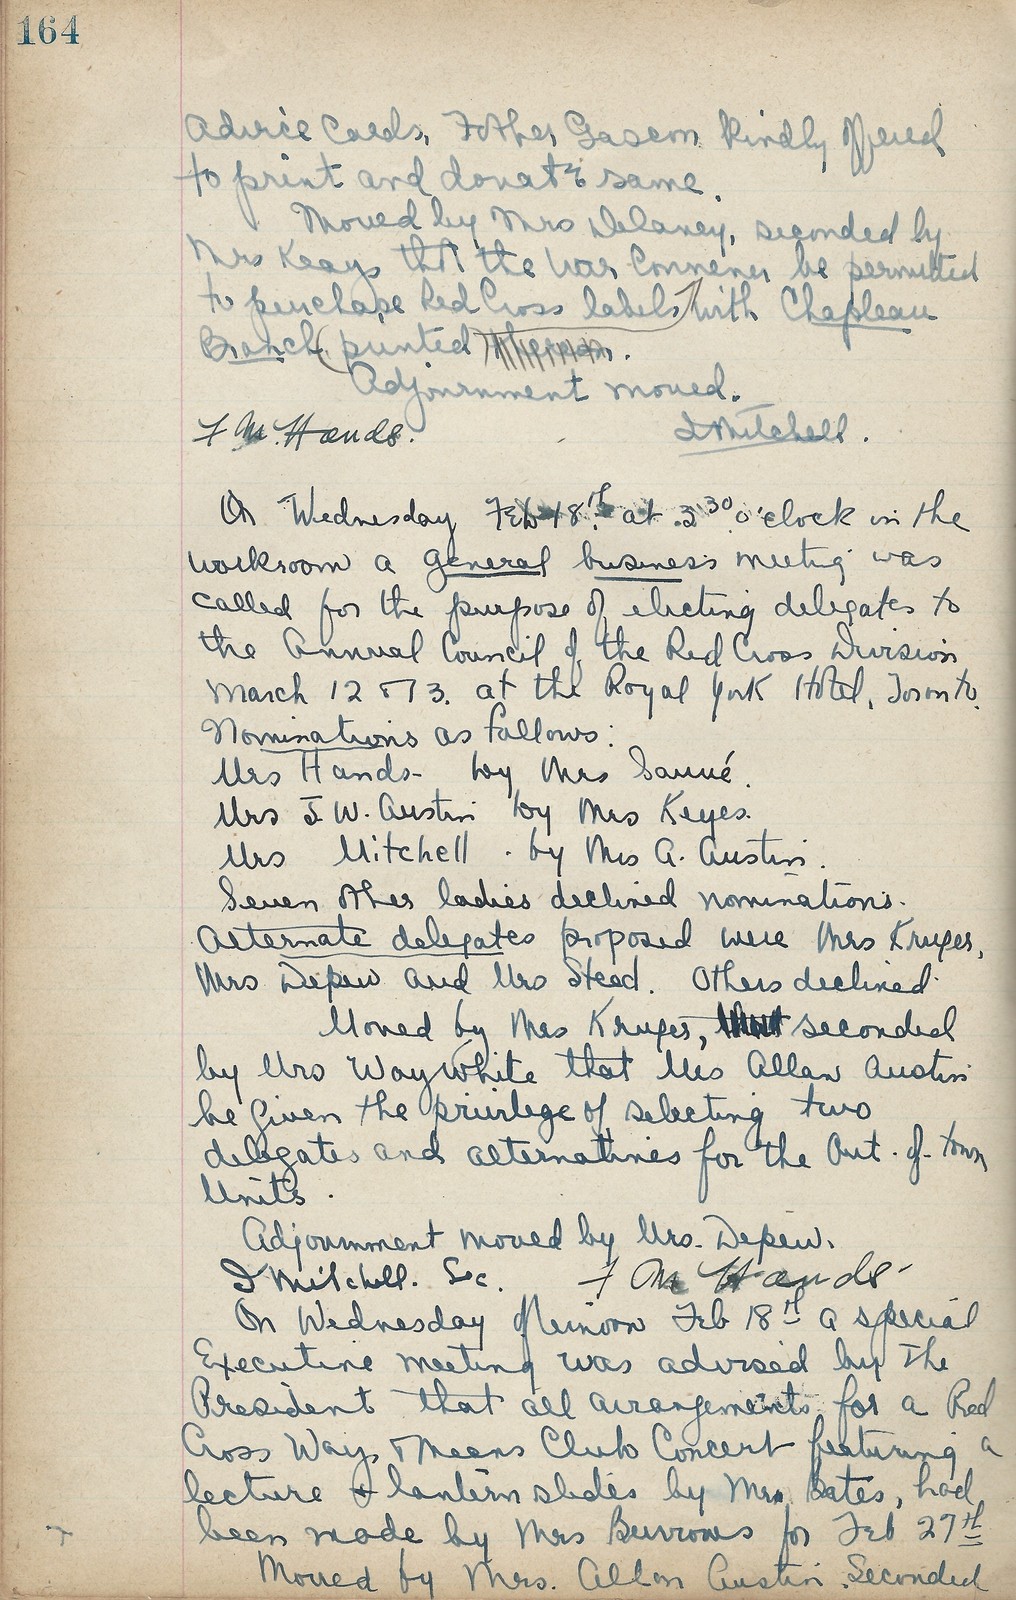 164
Advice Cards, Father Gascon kindly offered
to print and donate same.
Moved by Mrs Delaney, seconded by
Mrs Keays that the War Convener be permitted
to purchase Red Cross labels with Chapleau
Branch printed thereon.
Adjournment moved.
F M. Hands. I Mitchell.
On Wednesday Feb 18th. at 3 30 o'clock in the
workroom a general business meeting was
called for the purpose of electing delegates to
the Annual Council of the Red Cross Division
March 12 & 13. at the Royal York Hotel, Toronto.
Nominations as follows:
Mrs Hands - by Mrs Sauvé.
Mrs J. W. Austin by Mrs Keyes.
Mrs Mitchell . by Mrs A. Austin.
Seven other ladies declined nominations.
Alternate delegates proposed were Mrs Kruger,
Mrs Depew and Mrs Steed. Others declined
Moved by Mrs Kruger, that seconded
by Mrs Way White that Mrs Allan Austin
be given the privilege of selecting two
delegates and alternatives for the Out-of-town
Units.
Adjournment moved by Mrs. Depew.
I Mitchell. Sec. F M Hands-
On Wednesday afternoon Feb 18th a special
Executive meeting was advised by the
President that all arrangements for a Red
Cross Ways & Means Club Concert featuring a
lecture & lantern slides by Mrs Bates, had
been made by Mrs Burrows for Feb 27th
Moved by Mrs. Allan Austin. Seconded